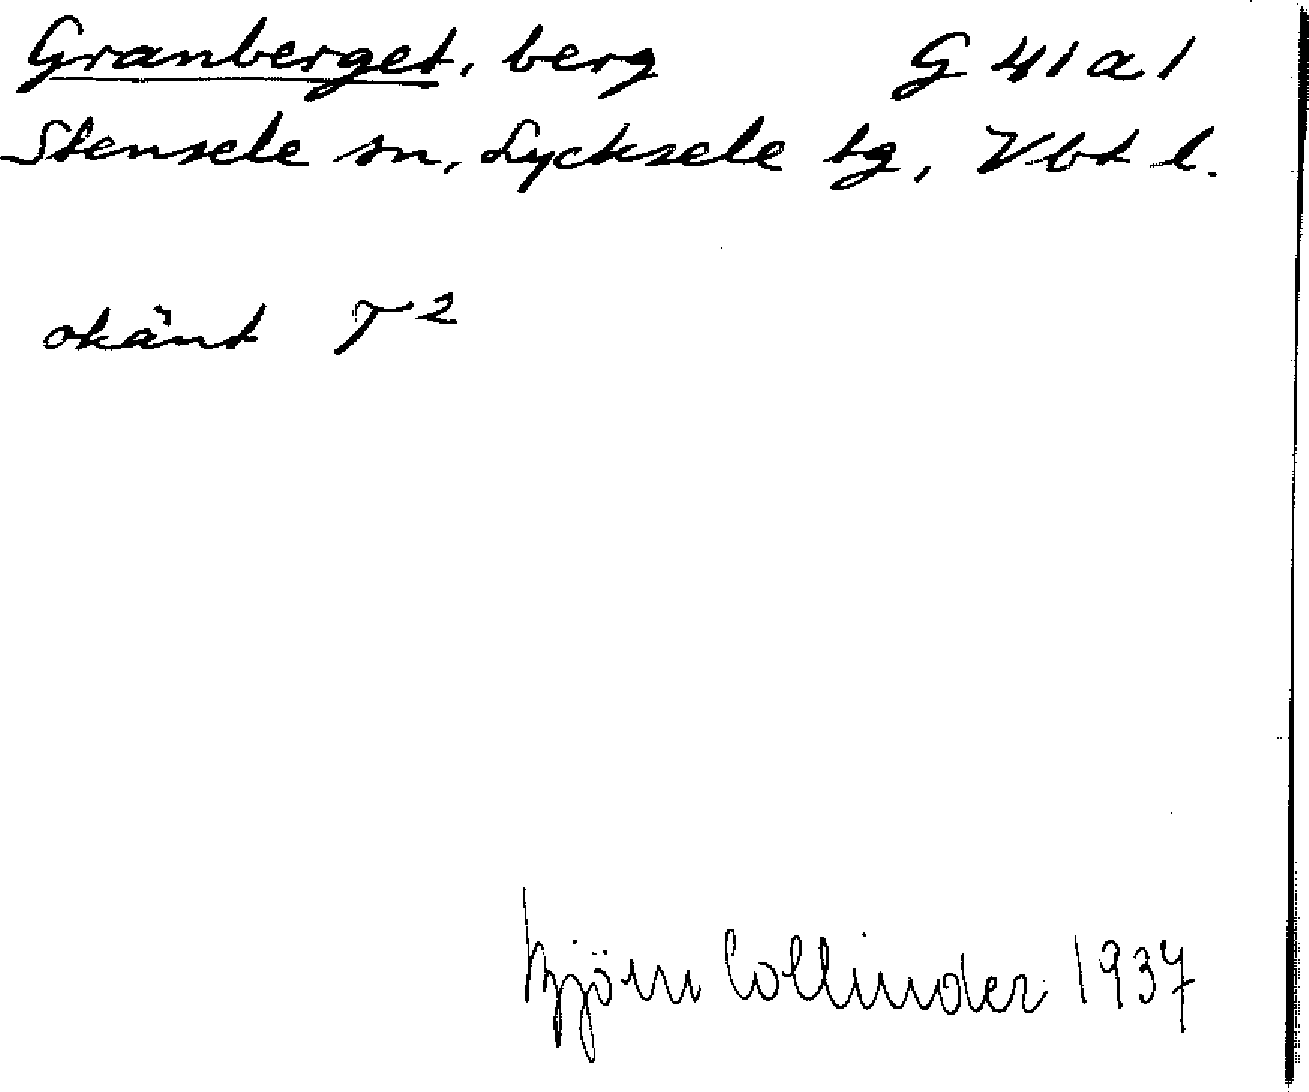 Granberget, berg G 41 a 1
Stensele sn, Lycksele tg, Vbt l.
okänt T²
Björn Collinder 1937